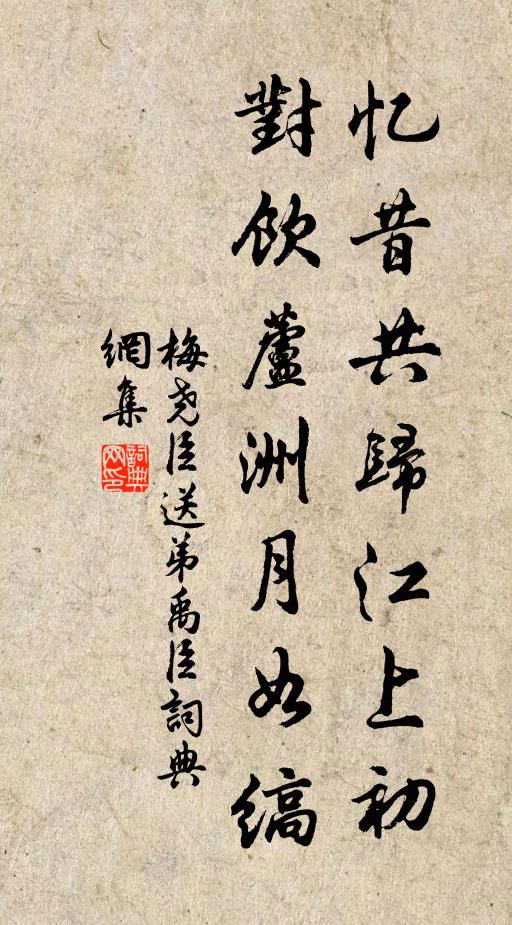 忆昔共歸江上初
對飲蘆洲月如缟
梅尧臣送弟禹臣詞典
網集
詞典
网印